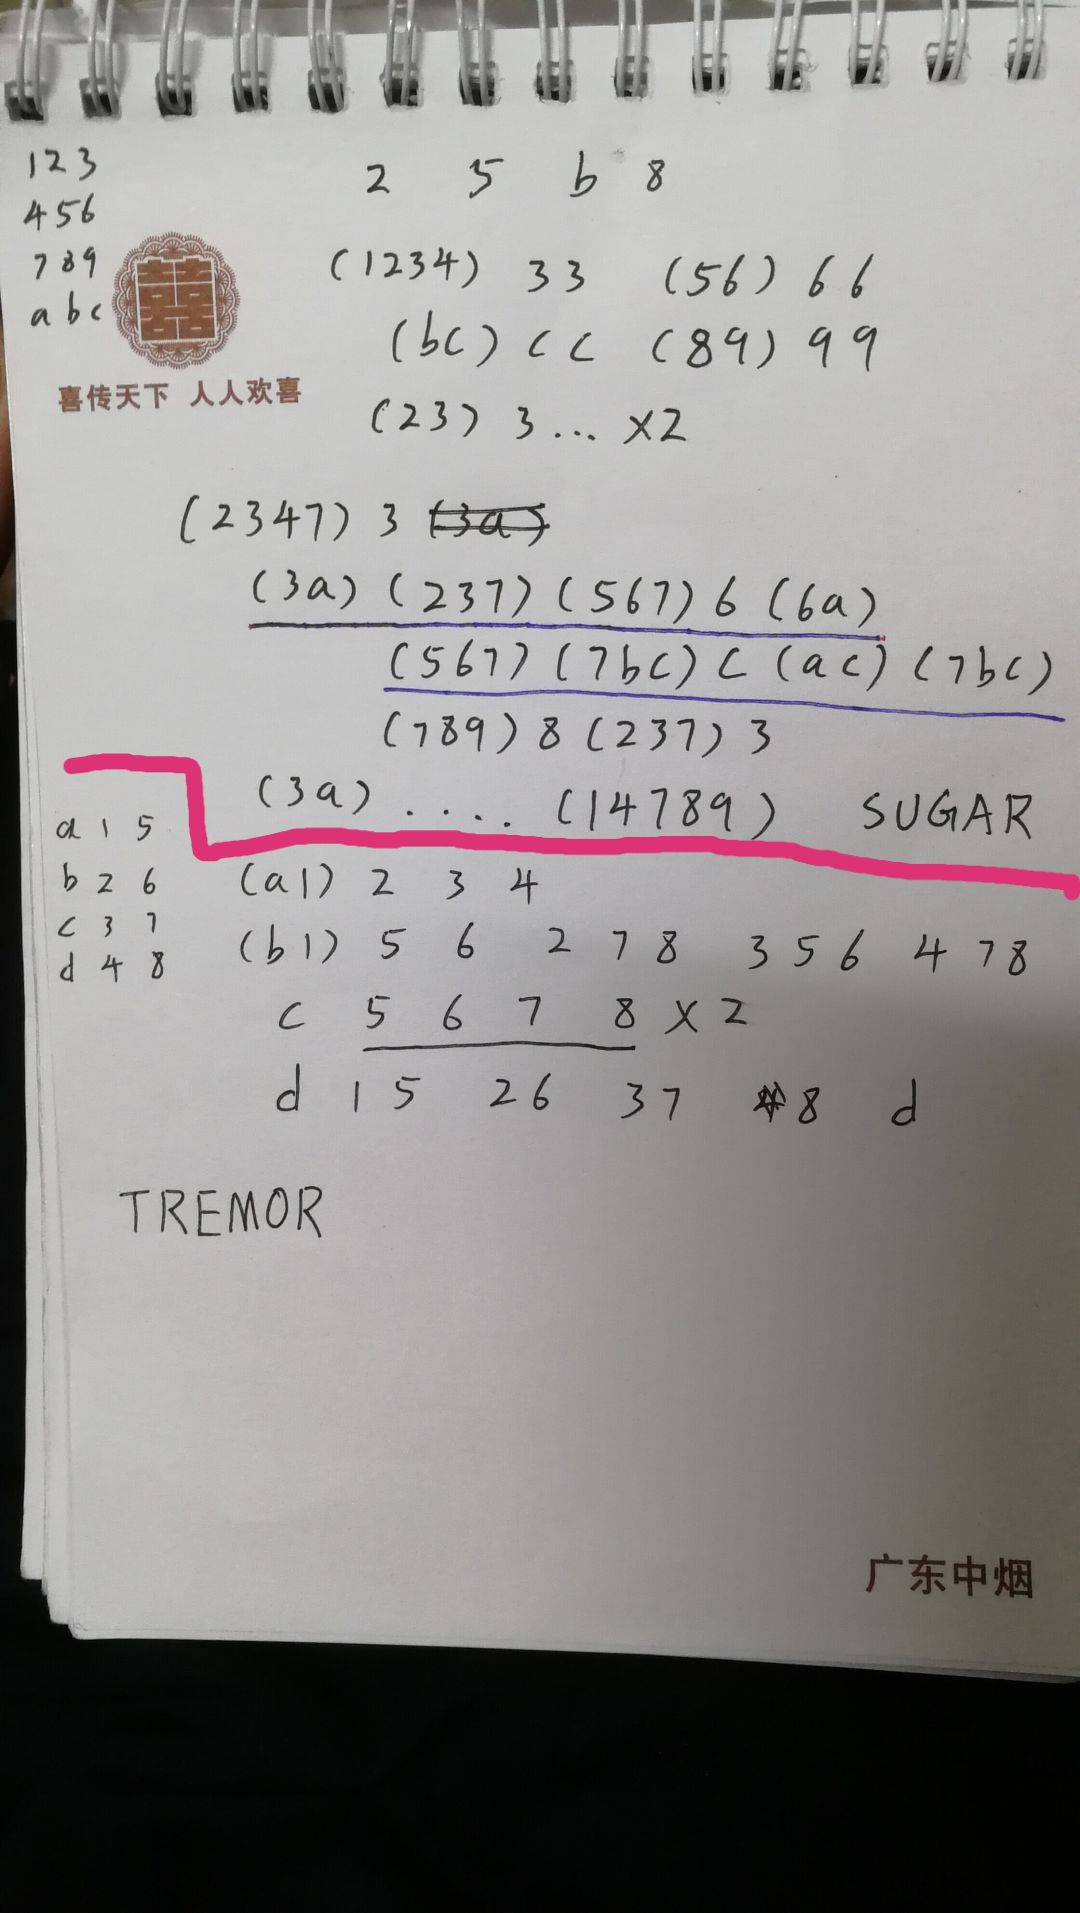 123
456
789
abc
喜传天下 人人欢喜
2 5 b 8
(1234) 33 (56) 66
(bc) cc (89) 99
(23) 3... x2
(2347) 3 (3a)
(3a) (237) (567) 6 (6a)
(567) (7bc) c (ac) (7bc)
(789) 8 (237) 3
(3a) .... (14789) SUGAR
a 1 5
b 2 6
c 3 7
d 4 8
(a1) 2 3 4
(b1) 5 6 2 7 8 3 5 6 4 7 8
c 5 6 7 8 x 2
d 1 5 2 6 3 7 8 d
TREMOR
广东中烟